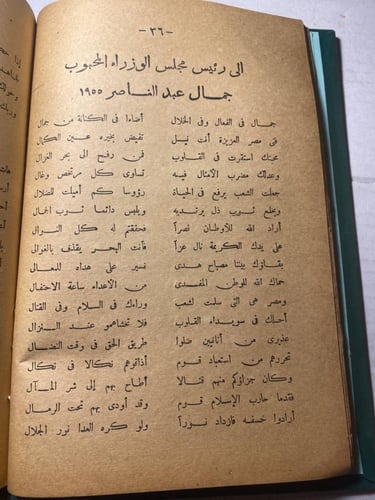 -٣٦-
الى رئيس مجلس الوزراء المحبوب
جمال عبد الناصر ١٩٥٥
جمال فى الفعال وفى الخلال أضاءا فى الكنانة من جمال
فتى مصر العزيزة أنت نيل تفيض بخيره عين الكمال
محبتك استقرت فى القلوب فمن رفح الى بحر الغزال
وعدلك مضرب الأمثال فيه تساوى كل مرتخص وغال
جعلت الشعب يرفع فى الحياة رؤوسا كم أميلت للضلال
ويخلع ثوب ذل يرتديه ويلبس دائما ثوب الجمال
أراد الله للأوطان نصراً فحققتم له كل النوال
على يدك الكريمة نال عزاً فأنت البحر يقذف باللآلى
بقاؤك بيننا مصباح هدى نسير على هداه للمعالى
حماك الله للوطن المفدى من الأعداء ساعة الاحتفال
ومصر هى التى سلت لشعب وراءك فى السلام وفى القتال
أحلك فى سويداء القلوب فلا تخشاهمو عند النزال
عذيرى من أنانيين ضلوا طريق الحق فى وقت النضال
تحررهم من استعباد قوم أذاقوهم نكالا فى نكال
وكان جزاؤكم منهم قتالا أطاح بهم إلى شر المآل
فقدما حارب الإسلام قوم وقد أودى بهم تحت الرمال
أرادوا خسفه فازداد نوراً ولو كره العدا نور الجلال